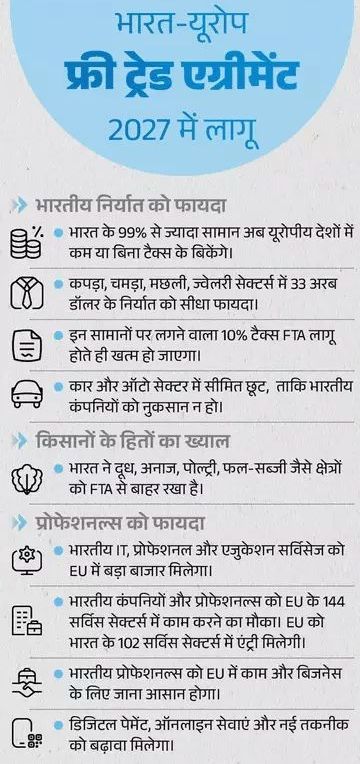 भारत-यूरोप
फ्री ट्रेड एग्रीमेंट
2027 में लागू
भारतीय निर्यात को फायदा
भारत के 99% से ज्यादा सामान अब यूरोपीय देशों में
कम या बिना टैक्स के बिकेंगे।
कपड़ा, चमड़ा, मछली, ज्वेलरी सेक्टर्स में 33 अरब
डॉलर के निर्यात को सीधा फायदा।
इन सामानों पर लगने वाला 10% टैक्स FTA लागू
होते ही खत्म हो जाएगा।
कार और ऑटो सेक्टर में सीमित छूट, ताकि भारतीय
कंपनियों को नुकसान न हो।
किसानों के हितों का ख्याल
भारत ने दूध, अनाज, पोल्ट्री, फल-सब्जी जैसे क्षेत्रों
को FTA से बाहर रखा है।
प्रोफेशनल्स को फायदा
भारतीय IT, प्रोफेशनल और एजुकेशन सर्विसेज को
EU में बड़ा बाजार मिलेगा।
भारतीय कंपनियों और प्रोफेशनल्स को EU के 144
सर्विस सेक्टर्स में काम करने का मौका। EU को
भारत के 102 सर्विस सेक्टर्स में एंट्री मिलेगी।
भारतीय प्रोफेशनल्स को EU में काम और बिजनेस
के लिए जाना आसान होगा।
डिजिटल पेमेंट, ऑनलाइन सेवाएं और नई तकनीक
को बढ़ावा मिलेगा।